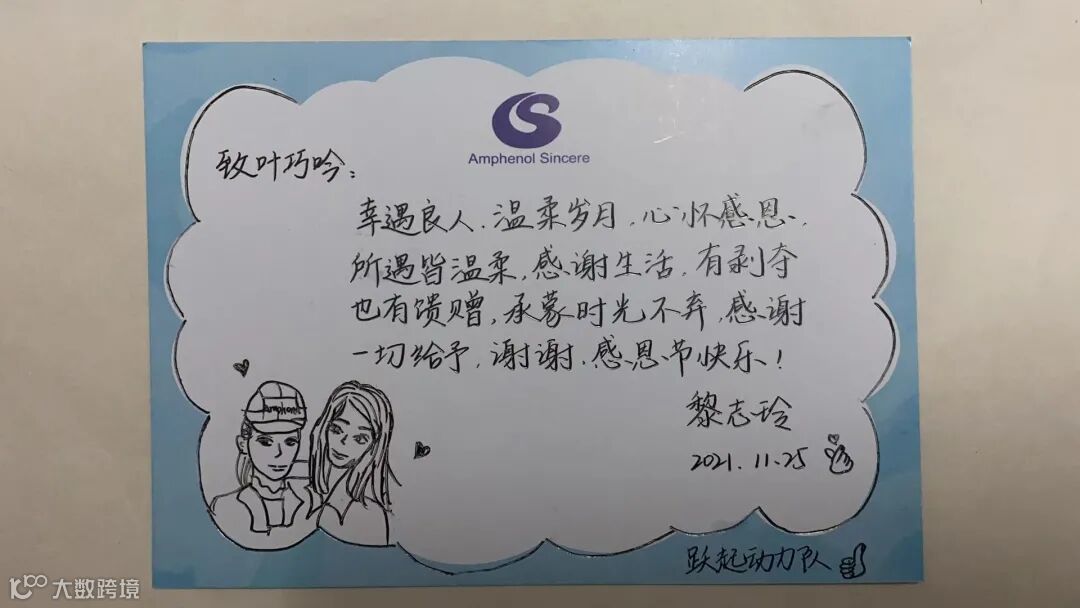 Amphenol Sincere
致叶巧吟：
幸遇良人.温柔岁月,心怀感恩.
所遇皆温柔,感谢生活,有剥夺
也有馈赠,承蒙时光不弃,感谢
一切给予,谢谢.感恩节快乐!
黎志玲
2021.11.25
Amphenol
跃起动力队
大数跨境